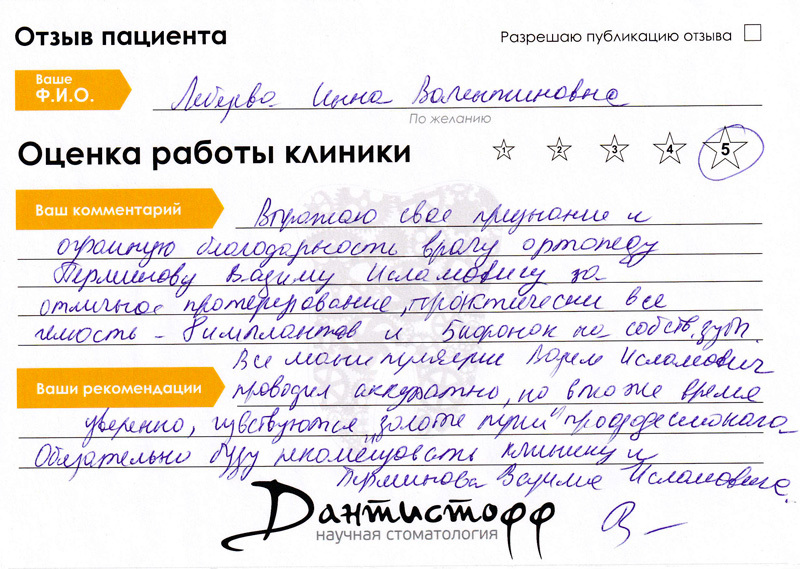 Отзыв пациента
Разрешаю публикацию отзыва
Ваше
Ф.И.О.
Инна Валентиновна
По желанию
Оценка работы клиники
1 2 3 4 5
Ваш комментарий
Выражаю свое признание и
огромную благодарность врачу ортопеду
Перминову Вадиму Исламовичу за
отличное протезирование, практически все
челюсть - 8 имплантов и 5 коронок на собств. зуб.
Все манипуляции Вадим Исламович
Ваши рекомендации
проводил аккуратно, но в тоже время
уверенно, чувствуются "золотые руки" профессионала
Обязательно буду рекомендовать клинику и
Перминова Вадима Исламовича.
Дантистофф
научная стоматология